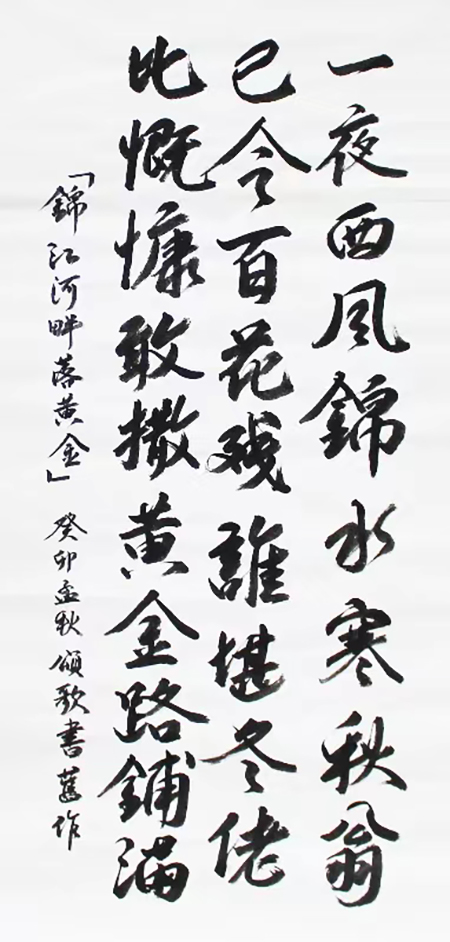 一夜西风錦水寒秋翁
已令百花残誰堪冬佬
比慨慷敢撒黄金路鋪满
「錦江河畔落黄金」 癸卯孟秋頌歌書舊作